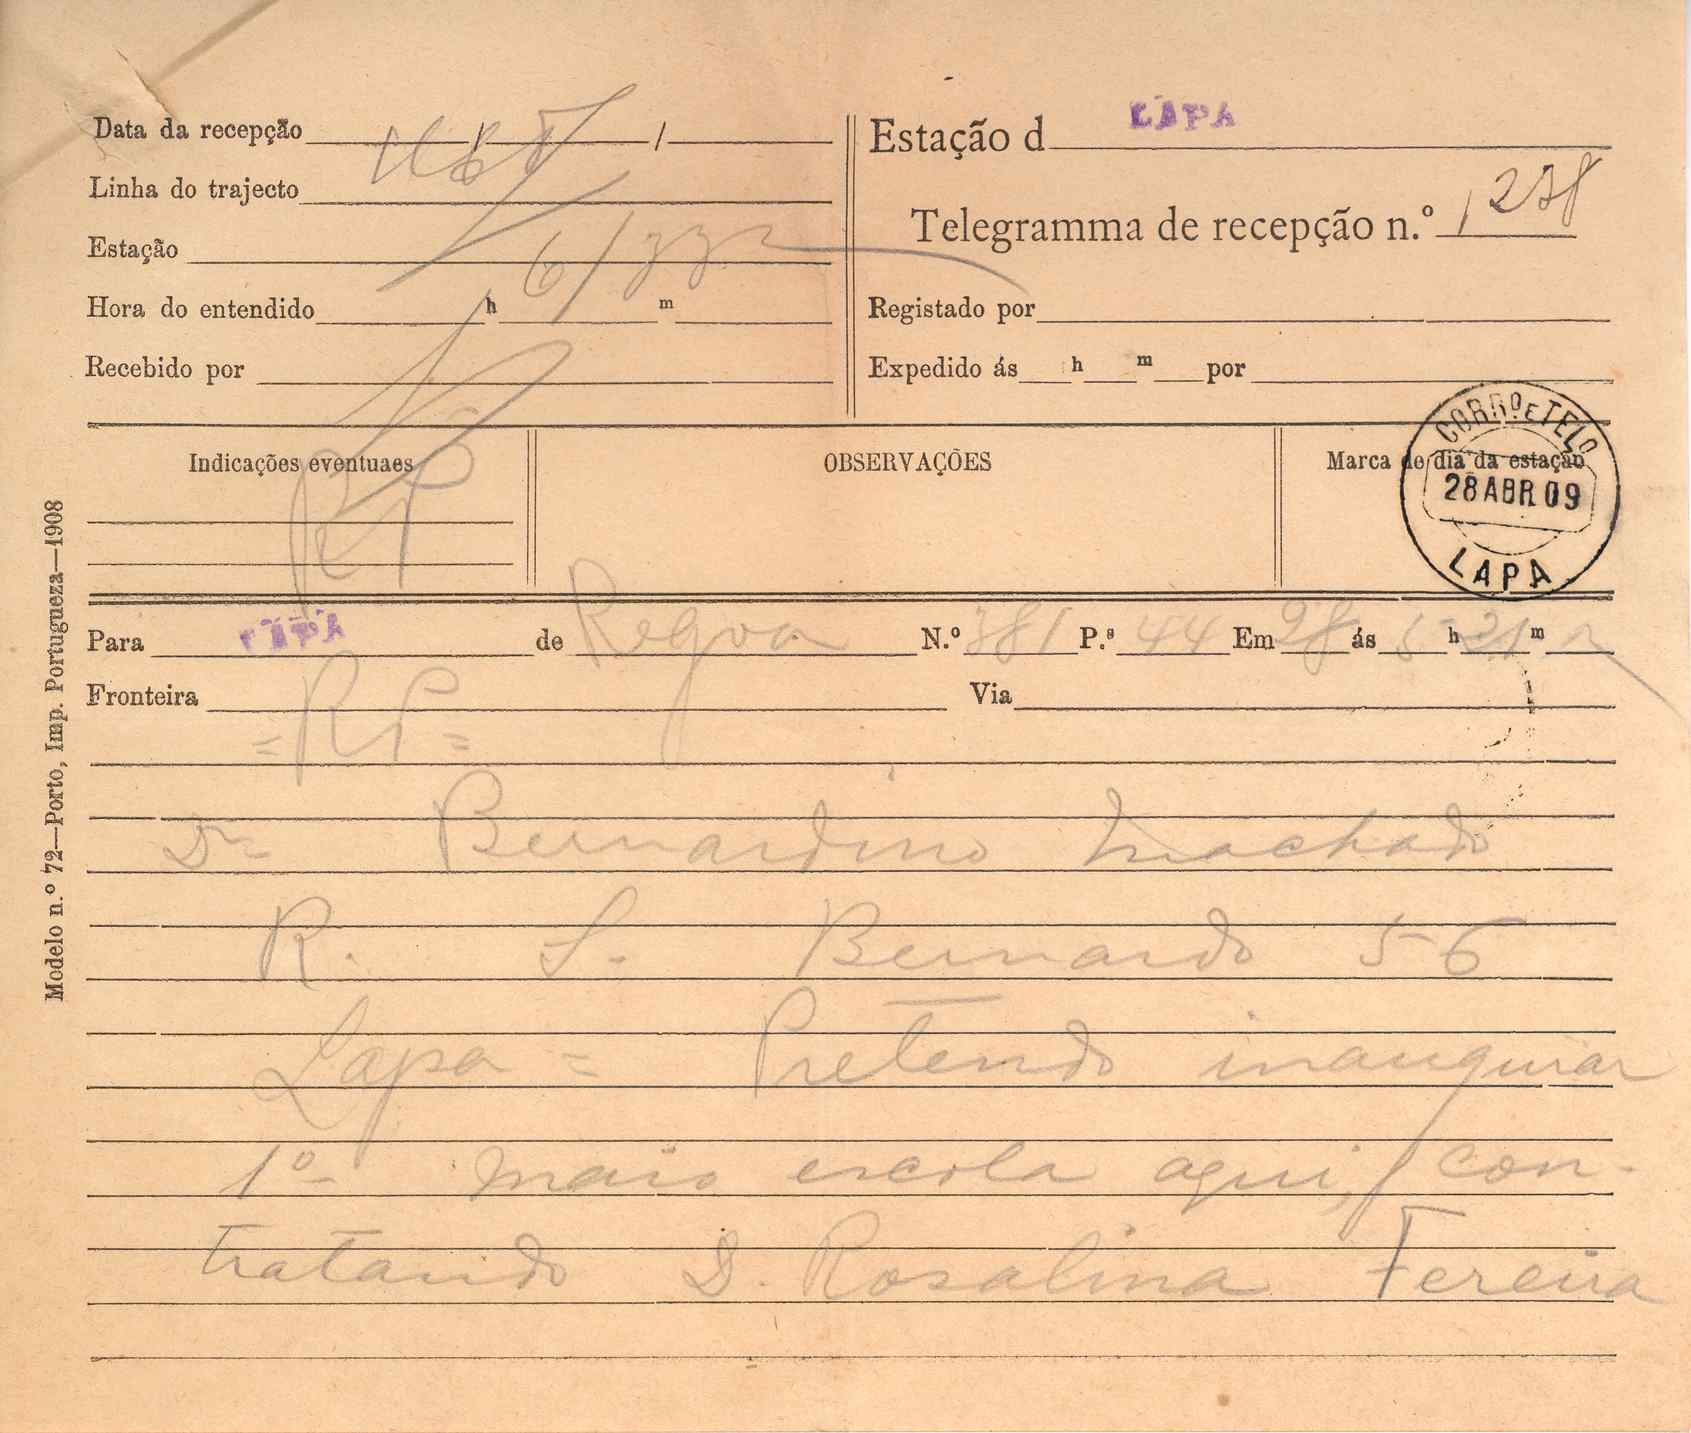 Data da recepção / /
Linha do trajecto
Estação
Hora do entendido h m
Recebido por
Estação d LAPA
Telegramma de recepção n.º
Registado por
Expedido ás h m por
Indicações eventuaes
OBSERVAÇÕES
Marca de dia da estação
CORRO. E TELO
28 ABR 09
LAPA
Modelo n.º 72—Porto, Imp. Portugueza—1908
RP
Para LAPA de Regoa N.º 381 P.s 44 Em 28 ás 5 h 21 m
Fronteira Via
= RP =
Dr Bernardino Machado
R. S. Bernardo 56
Lapa = Pretendo inaugurar
1º maio escola aqui, con-
tratando D. Rosalina Fereira